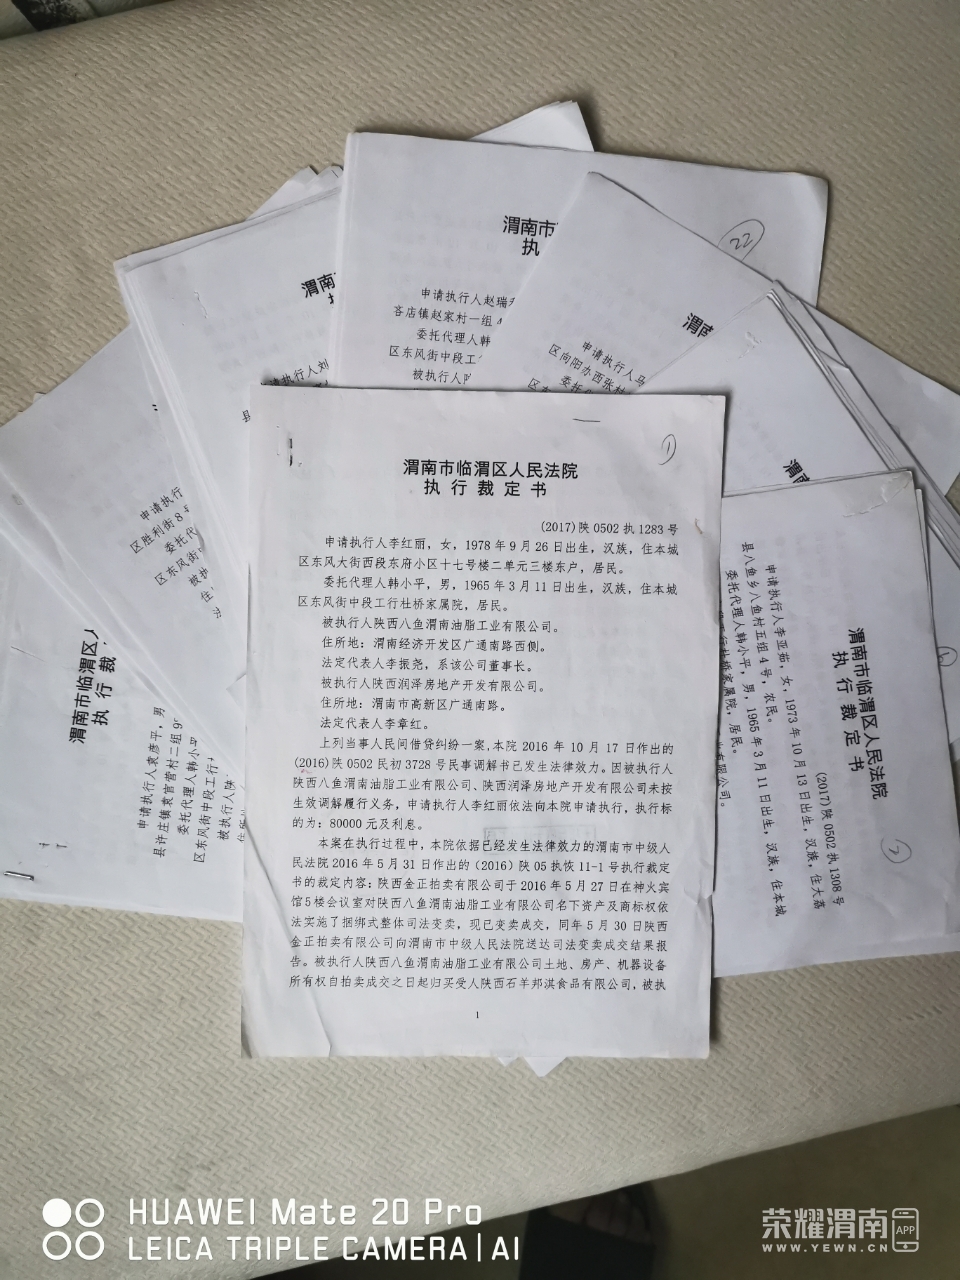 22
渭南市
执
申请执行人赵瑞
吝店镇赵家村一组
委托代理人韩
区东风街中段工
被执行人陕
渭南
执行人刘
县
渭南
申请执行人马
区向阳办西张村
委托代
渭南
申请执行
区胜利街8号
委托代
区东风街
被执
住
渭南市临渭区人
执行裁
申请执行人袁彦平，男
县许庄镇袁官营村二组9
委托代理人韩小平
区东风街中段工行
被执行人陕
住所
①
渭南市临渭区人民法院
执行裁定书
(2017)陕0502执1283号
申请执行人李红丽，女，1978年9月26日出生，汉族，住本城
区东风大街西段东府小区十七号楼二单元三楼东户，居民。
委托代理人韩小平，男，1965年3月11日出生，汉族，住本城
区东风街中段工行杜桥家属院，居民。
被执行人陕西八鱼渭南油脂工业有限公司。
住所地：渭南经济开发区广通南路西侧。
法定代表人李振尧，系该公司董事长。
被执行人陕西润泽房地产开发有限公司。
住所地：渭南市高新区广通南路。
法定代表人李章红。
上列当事人民间借贷纠纷一案，本院2016年10月17日作出的
(2016)陕0502民初3728号民事调解书已发生法律效力。因被执行人
陕西八鱼渭南油脂工业有限公司、陕西润泽房地产开发有限公司未按
生效调解履行义务，申请执行人李红丽依法向本院申请执行，执行标
的为：80000元及利息。
本案在执行过程中，本院依据已经发生法律效力的渭南市中级人
民法院2016年5月31日作出的(2016)陕05执恢11-1号执行裁定
书的裁定内容：陕西金正拍卖有限公司于2016年5月27日在神火宾
馆5楼会议室对陕西八鱼渭南油脂工业有限公司名下资产及商标权依
法实施了捆绑式整体司法变卖，现已变卖成交，同年5月30日陕西
金正拍卖有限公司向渭南市中级人民法院送达司法变卖成交结果报
告。被执行人陕西八鱼渭南油脂工业有限公司土地、房产、机器设备
所有权自拍卖成交之日起归买受人陕西石羊邦淇食品有限公司，被执
1
②
渭南市临渭区人民法院
执行裁定书
(2017)陕0502执1308号
申请执行人李亚茹，女，1973年10月13日出生，汉族，住大荔
县八鱼乡八鱼村五组4号，农民。
委托代理人韩小平，男，1965年3月11日出生，汉族，住本城
工行杜桥家属院，居民。
有限公司。
HUAWEI Mate 20 Pro
LEICA TRIPLE CAMERA | AI
荣耀渭南 APP
WWW.YEWN.CN